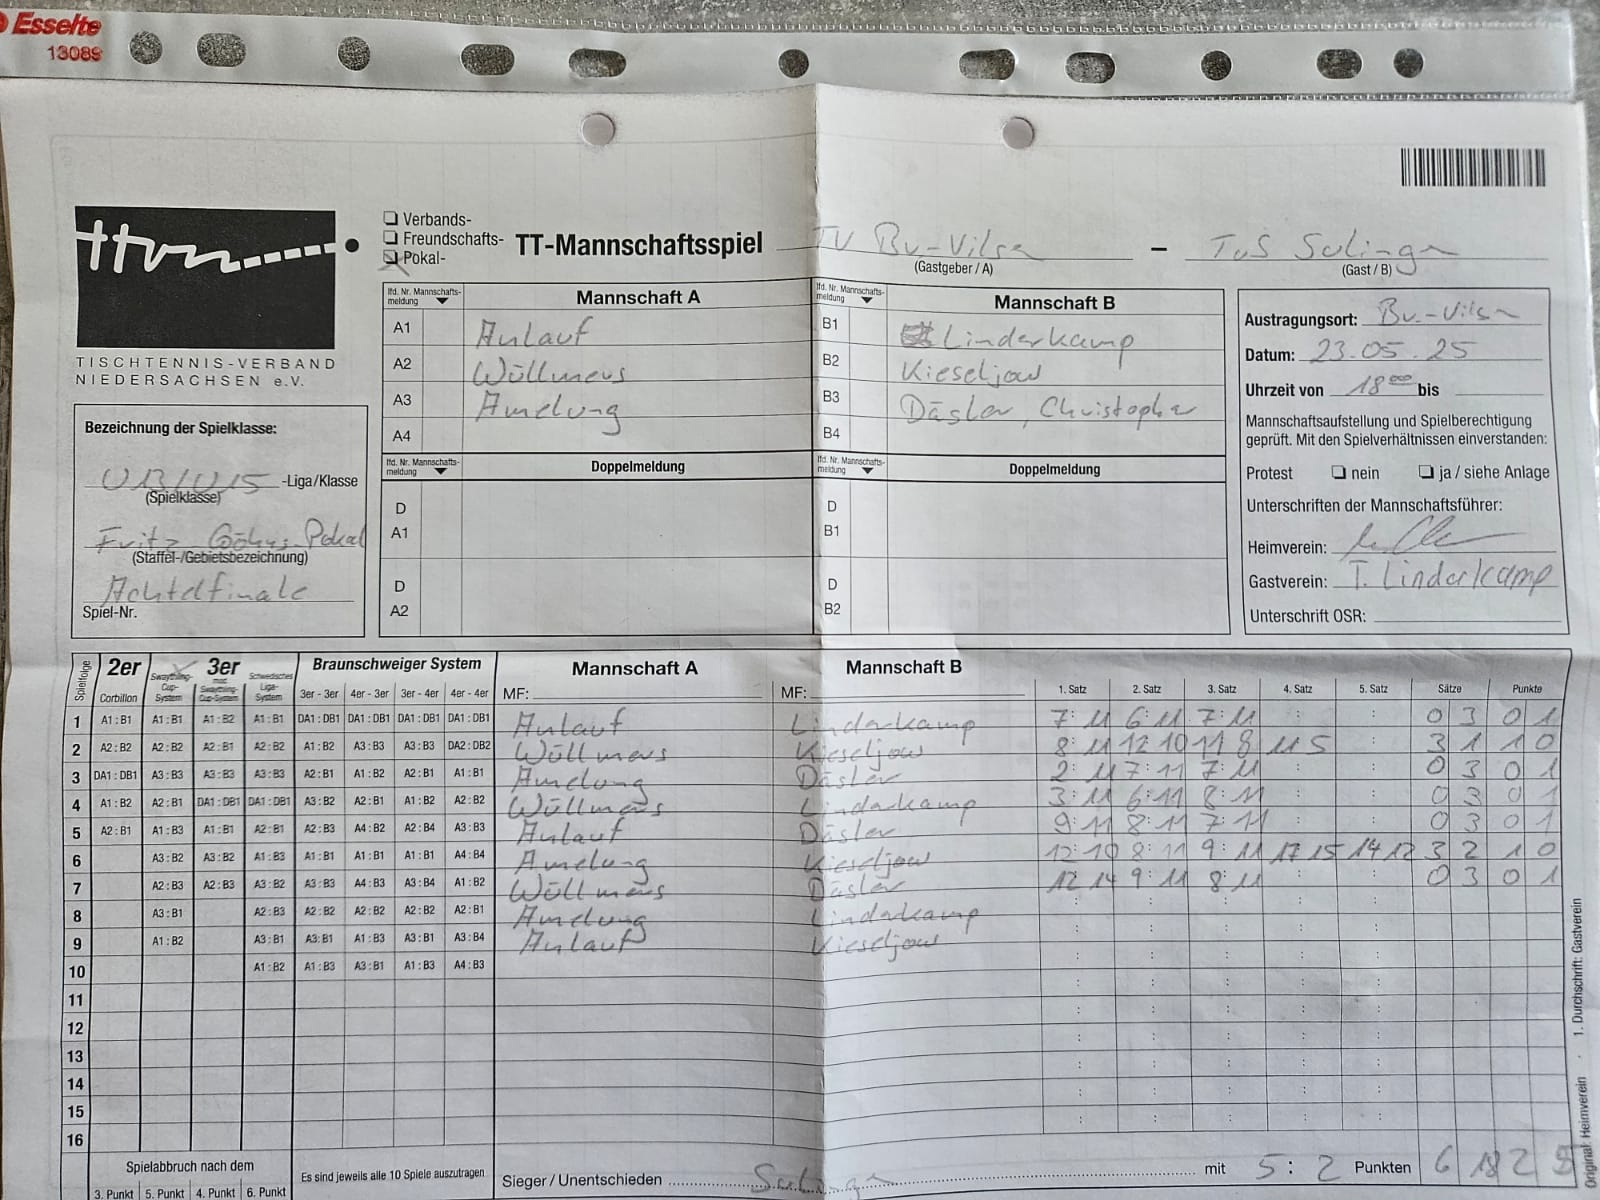 Esselte
13089
❏ Verbands-
❏ Freundschafts-
☒ Pokal-
TT-Mannschaftsspiel
TV Br.-Vilsen – TuS Sulingen
(Gastgeber / A) (Gast / B)
ttvn
TISCHTENNIS-VERBAND
NIEDERSACHSEN e.V.
Bezeichnung der Spielklasse:
U13/U15 -Liga/Klasse
(Spielklasse)
Fritz Pokal
(Staffel-/Gebietsbezeichnung)
Achtelfinale
Spiel-Nr.
lfd. Nr. Mannschafts-meldung Mannschaft A
A1 Anlauf
A2 Wüllmers
A3 Amelung
A4
lfd. Nr. Mannschafts-meldung Doppelmeldung
D A1
D A2
lfd. Nr. Mannschafts-meldung Mannschaft B
B1 Linderkamp
B2 Kieseljow
B3 Däsler, Christopher
B4
lfd. Nr. Mannschafts-meldung Doppelmeldung
D B1
D B2
Austragungsort: Br.-Vilsen
Datum: 23.05.25
Uhrzeit von 18 00 bis
Mannschaftsaufstellung und Spielberechtigung
geprüft. Mit den Spielverhältnissen einverstanden:
Protest ❏ nein ❏ ja / siehe Anlage
Unterschriften der Mannschaftsführer:
Heimverein:
Gastverein: T. Linderkamp
Unterschrift OSR:
Spielfolge 2er 3er Braunschweiger System Mannschaft A Mannschaft B
Corbillon Swaythling-Cup-System mod. Swaythling-Cup-System Schwedisches Liga-System 3er - 3er 4er - 3er 3er - 4er 4er - 4er MF: MF: 1. Satz 2. Satz 3. Satz 4. Satz 5. Satz Sätze Punkte
1 A1 : B1 A1 : B1 A1 : B2 A1 : B1 DA1 : DB1 DA1 : DB1 DA1 : DB1 DA1 : DB1 Anlauf Linderkamp 7 : 11 6 : 11 7 : 11 : : 0 3 0 1
2 A2 : B2 A2 : B2 A2 : B1 A2 : B2 A1 : B2 A3 : B3 A3 : B3 DA2 : DB2 Wüllmers Kieseljow 8 : 11 12 10 11 8 11 5 : 3 1 1 0
3 DA1 : DB1 A3 : B3 A3 : B3 A3 : B3 A2 : B1 A1 : B2 A2 : B1 A1 : B1 Amelung Däsler 2 : 11 7 : 11 7 : 11 : : 0 3 0 1
4 A1 : B2 A2 : B1 DA1 : DB1 DA1 : DB1 A3 : B2 A2 : B1 A1 : B2 A2 : B2 Wüllmers Linderkamp 3 : 11 6 : 11 8 : 11 : : 0 3 0 1
5 A2 : B1 A1 : B3 A1 : B1 A2 : B1 A2 : B3 A4 : B2 A2 : B4 A3 : B3 Anlauf Däsler 9 : 11 8 : 11 7 : 11 : : 0 3 0 1
6 A3 : B2 A3 : B2 A1 : B3 A1 : B1 A1 : B1 A1 : B1 A4 : B4 Amelung Kieseljow 12 : 10 8 : 11 9 : 11 17 15 14 12 3 2 1 0
7 A2 : B3 A2 : B3 A3 : B2 A3 : B3 A4 : B3 A3 : B4 A1 : B2 Wüllmers Däsler 12 14 9 : 11 8 : 11 : : 0 3 0 1
8 A3 : B1 A2 : B3 A2 : B2 A2 : B2 A2 : B2 A2 : B1 Amelung Linderkamp : : : : :
9 A1 : B2 A3 : B1 A3 : B1 A1 : B3 A3 : B1 A3 : B4 Anlauf Kieseljow : : : : :
10 A1 : B2 A1 : B3 A3 : B1 A1 : B3 A4 : B3 : : : : :
11 : : : : :
12 : : : : :
13 : : : : :
14 : : : : :
15 : : : : :
16 : : : : :
Spielabbruch nach dem
3. Punkt 5. Punkt 4. Punkt 6. Punkt
Es sind jeweils alle 10 Spiele auszutragen
Sieger / Unentschieden Sulingen mit 5 : 2 Punkten 6 18 2 5
Original: Heimverein · 1. Durchschrift: Gastverein